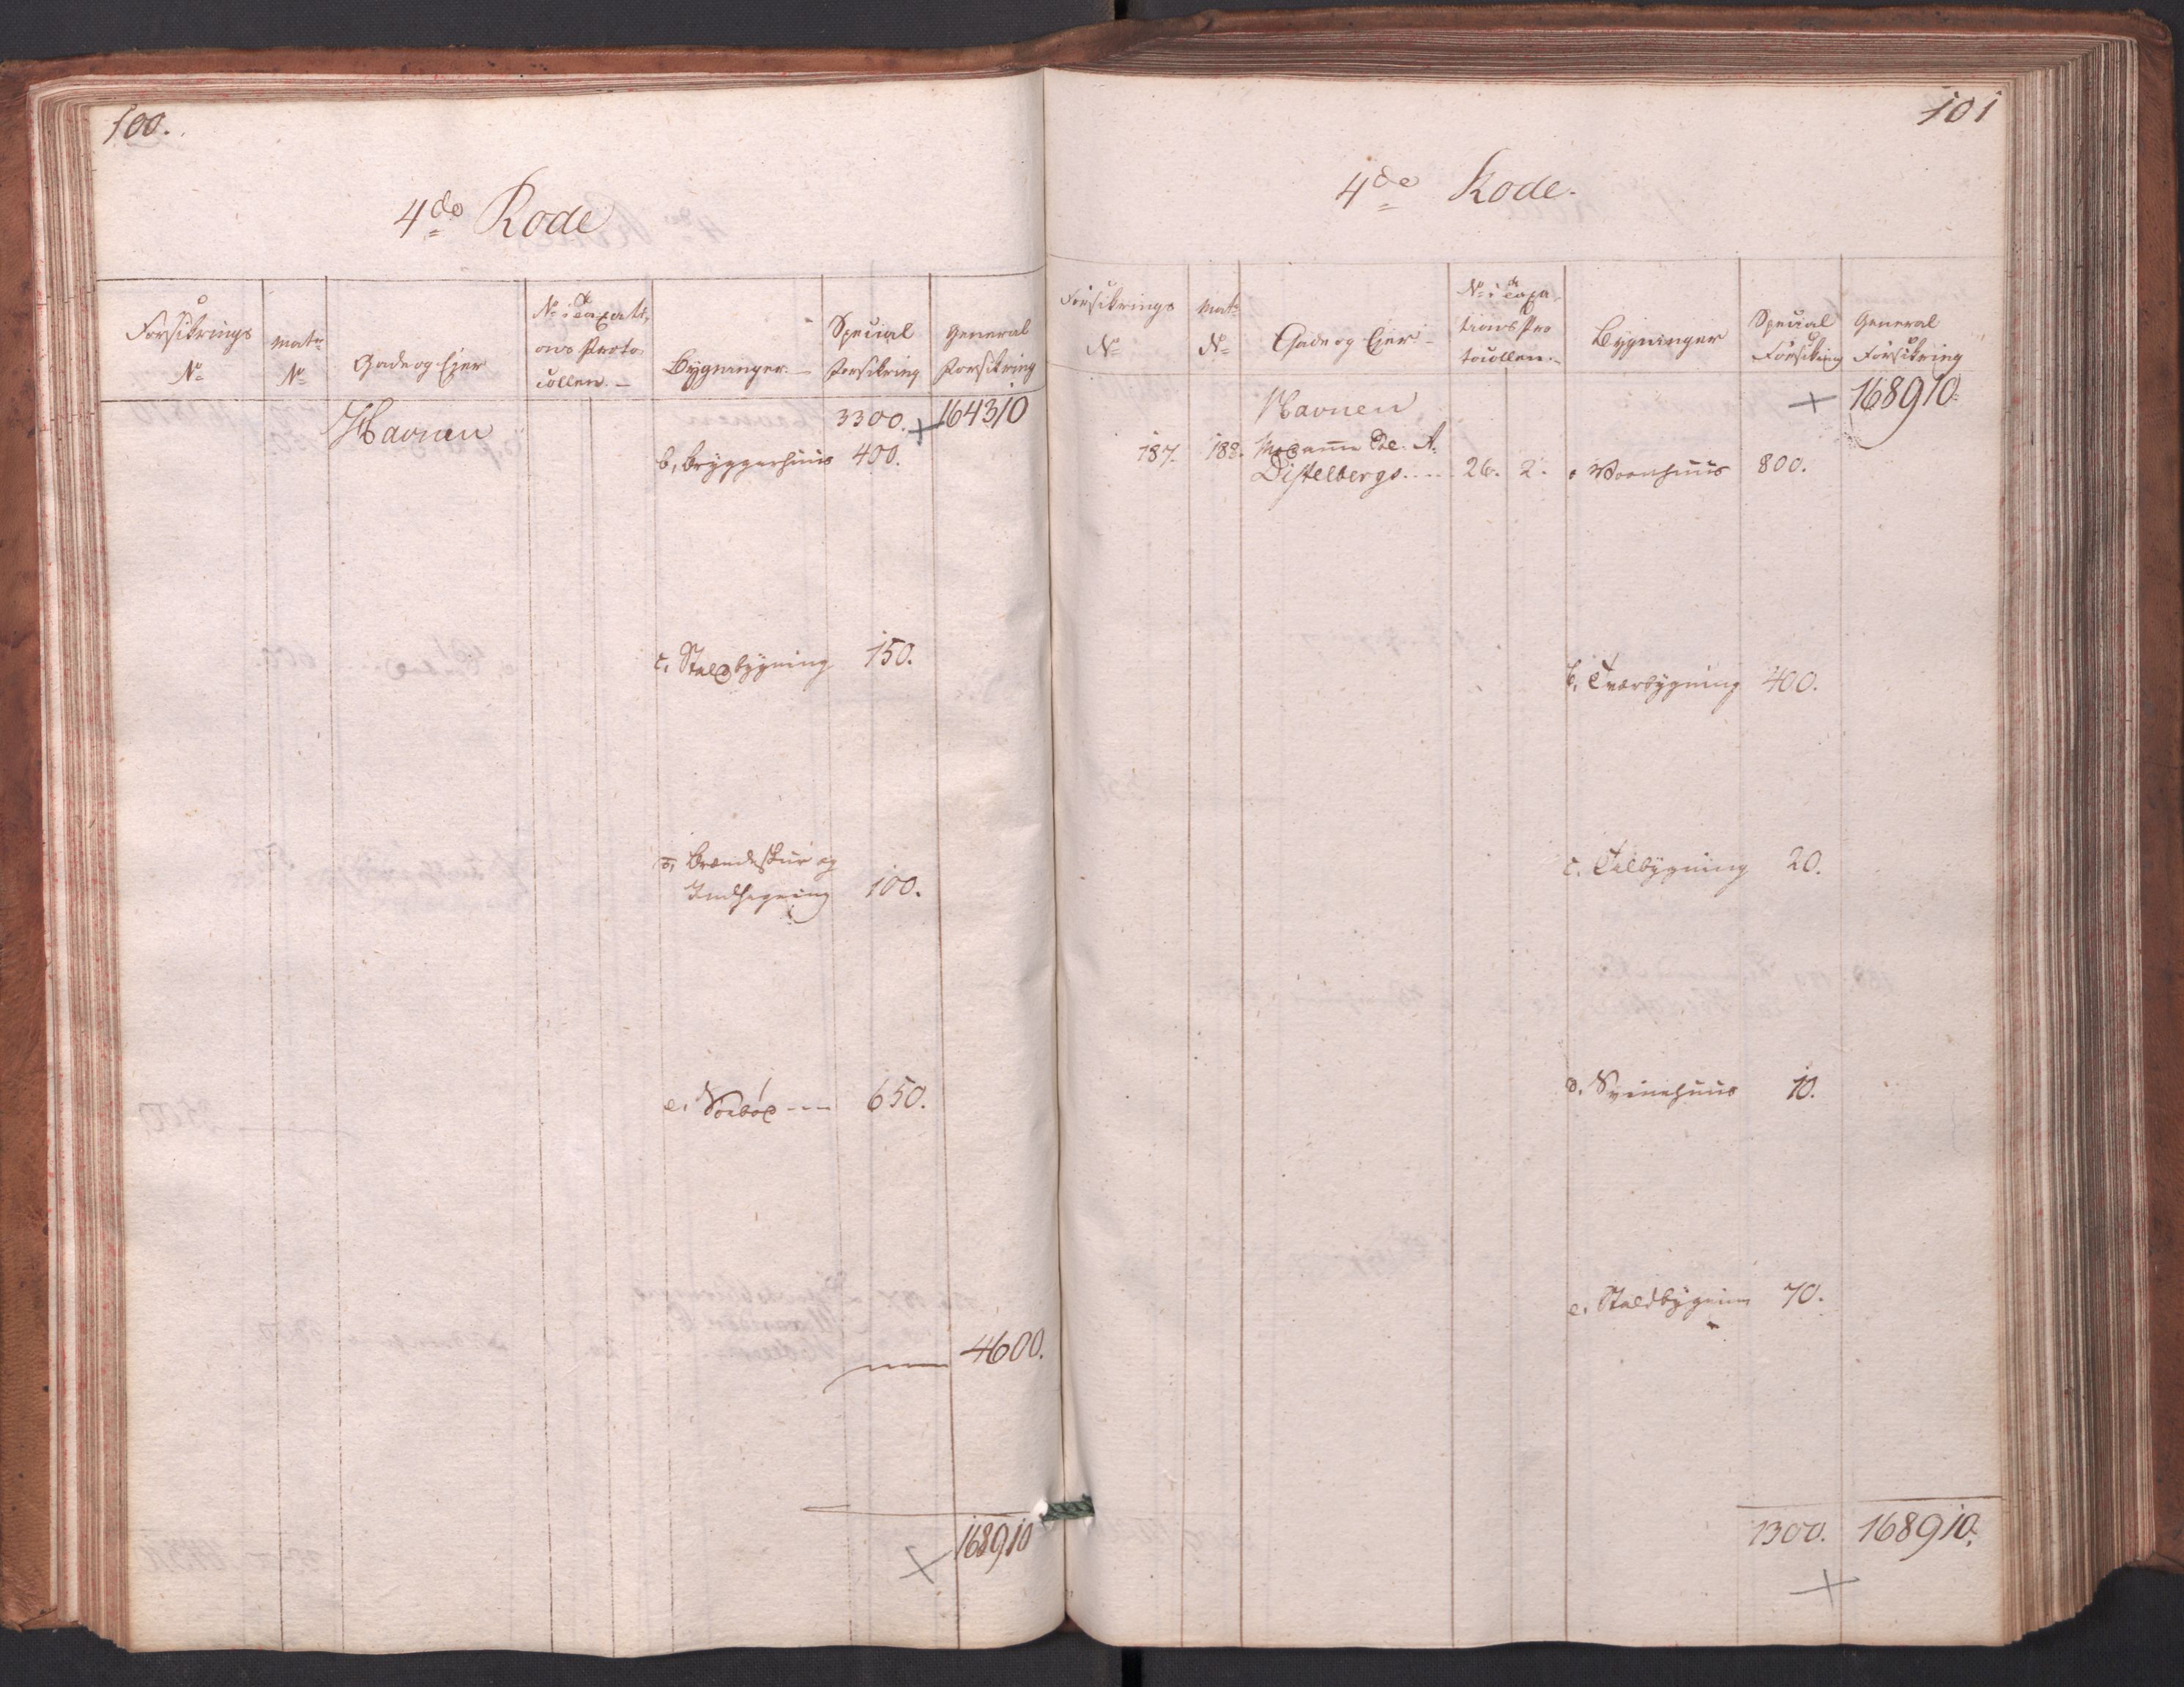 100.
4de Rode
Forsikrings No
Matr No
Gade og Ejer
No i Taxati-
ons Proto-
collen.
Bygninger.
Special Forsikring
General Forsikring
Havnen
3300. + 164310
b, Bryggerhuus 400.
c, Staldbygning 150.
d, Brændeskur og
Indhegning 100.
e, Søebod 650.
4600.
+ 168910
101
4de Rode.
Forsikrings No
Matr No
Gade og Ejer
No i Taxa-
tions Pro
tocollen.
Bygninger
Special Forsikring
General Forsikring
Havnen + 168910.
187. 188. Madame A.
Distelbergs 26. 2. a Vaanhuus 800.
b, Tværbygning 400.
c. TaLbygning 20.
d. Svinehuus 10.
e. Staldbygning 70.
1300. 168910.
+